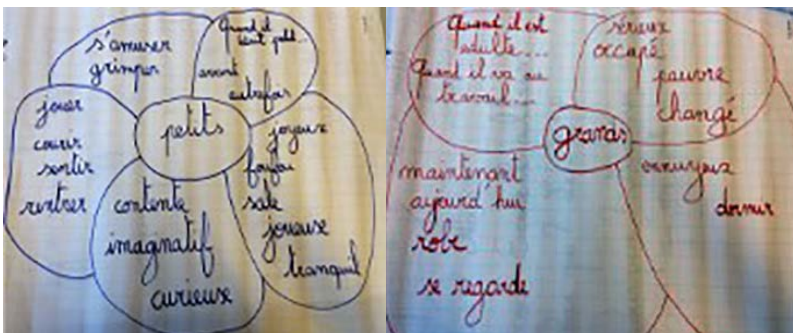 s'amuser
grimper
Quand il
était petit...
avant
autrefois
jouer
courir
sentir
rentrer
petits
joyeux
foufou
sale
joueuse
tranquil
contente
imaginatif
curieuse
Quand il est
adulte...
Quand il va au
travail...
sérieux
occupé
pauvre
changé
grands
maintenant
aujourd'hui
robe
se regarde
ennuyeux
dormir